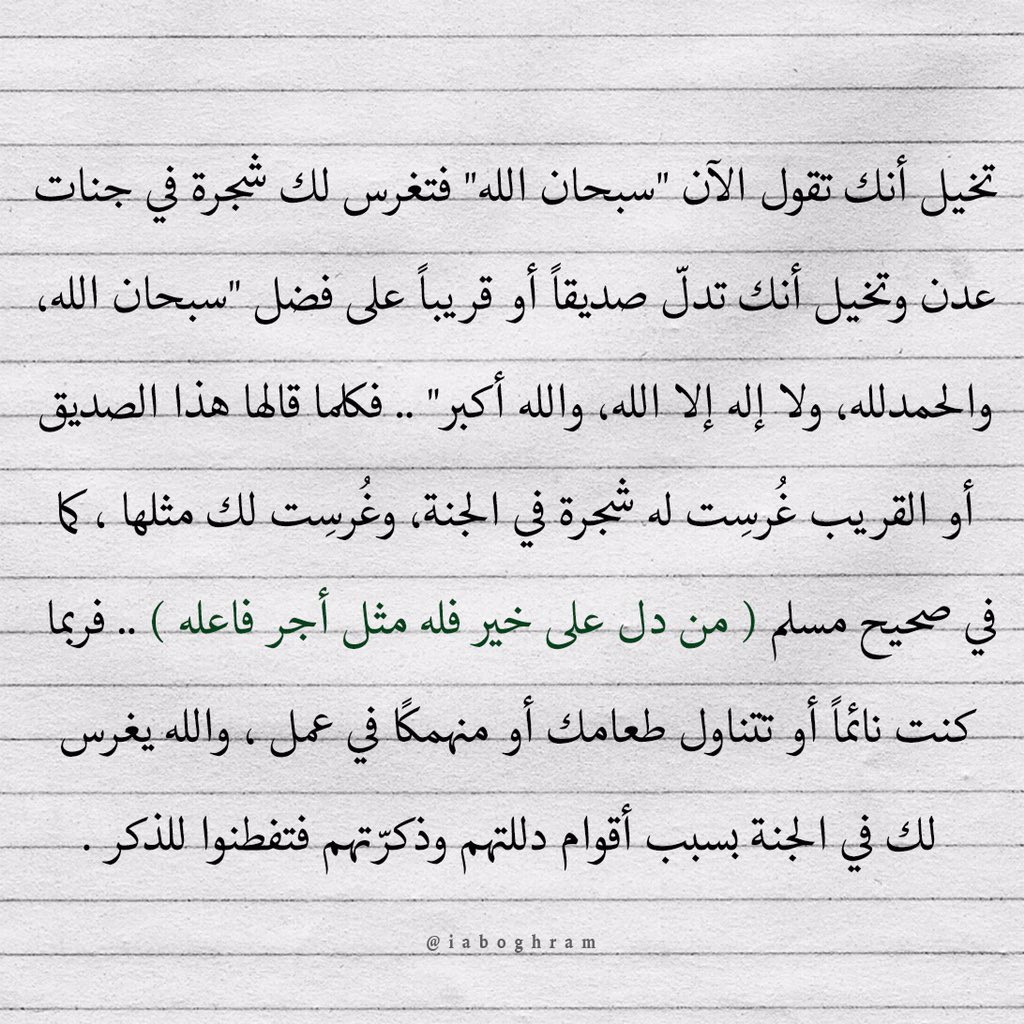 تخيل أنك تقول الآن "سبحان الله" فتغرس لك شجرة في جنات
عدن وتخيل أنك تدلّ صديقاً أو قريباً على فضل "سبحان الله،
والحمدلله، ولا إله إلا الله، والله أكبر" .. فكلما قالها هذا الصديق
أو القريب غُرسِت له شجرة في الجنة، وغُرسِت لك مثلها ، كما
في صحيح مسلم ( من دل على خير فله مثل أجر فاعله ) .. فربما
كنت نائماً أو تتناول طعامك أو منهمكًا في عمل ، والله يغرس
لك في الجنة بسبب أقوام دللتهم وذكرّتهم فتفطنوا للذكر .
@iaboghram